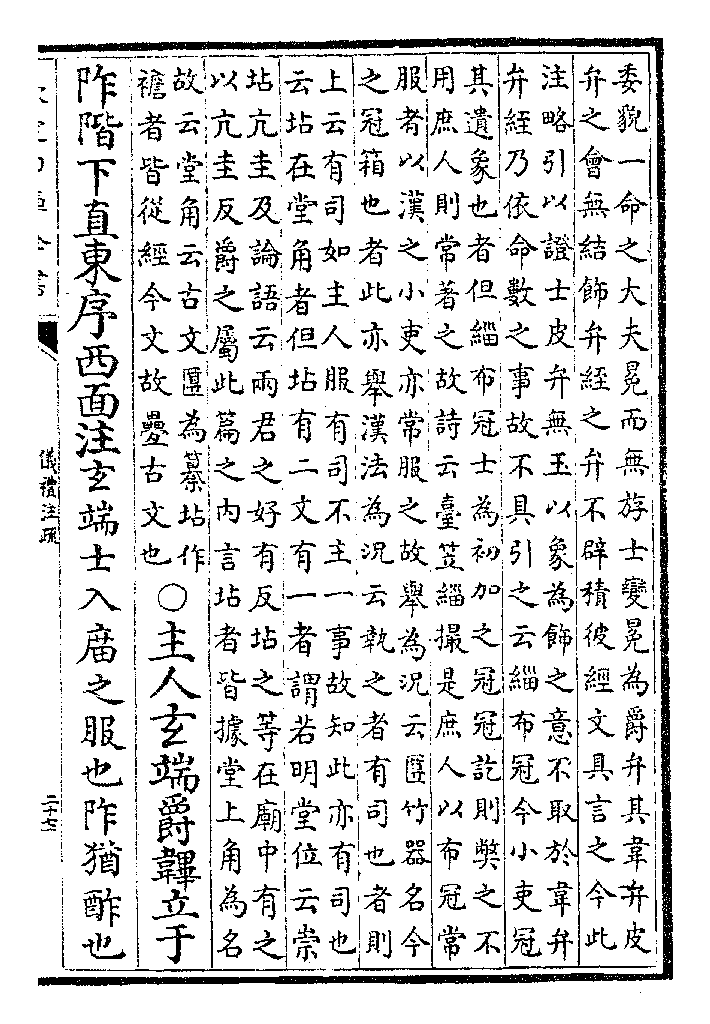 委貌一命之大夫冕而無旒士變冕為爵弁其韋弁皮
弁之會無結飾弁絰之弁不辟積彼經文具言之今此
注略引以證士皮弁無玉以象為飾之意不取於韋弁
弁絰乃依命數之事故不具引之云緇布冠今小吏冠
其遺象也者但緇布冠士為初加之冠冠訖則弊之不
用庶人則常著之故詩云臺笠緇撮是庶人以布冠常
服者以漢之小吏亦常服之故舉為況云匴竹器名今
之冠箱也者此亦舉漢法為況云執之者有司也者則
上云有司如主人服有司不主一事故知此亦有司也
云坫在堂角者但坫有二文有一者謂若明堂位云崇
坫亢圭及論語云兩君之好有反坫之等在廟中有之
以亢圭反爵之屬此篇之內言坫者皆據堂上角為名
故云堂角云古文匴為篹坫作
襜者皆從經今文故疊古文也
○主人玄端爵韠立于
阼階下直東序西面注玄端士入廟之服也阼猶酢也
儀禮注疏
二十七